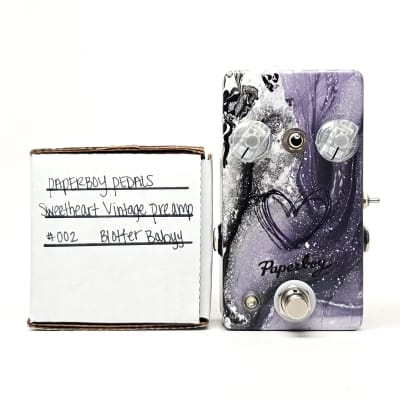 PAPERBOY PEDALS
Sweetheart Vintage Preamp
#002 Blotter Babyy
Paperboy